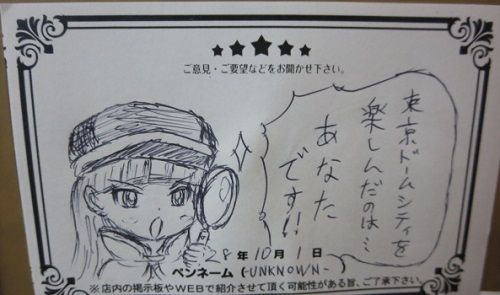 ご意見・ご要望などをお聞かせ下さい。
東京ドームシティを
楽しんだのは…
あなた
です!!
28年10月1日
ペンネーム (-UNKNOWN-
※店内の掲示板やWEBで紹介させて頂く可能性がある旨、ご了承下さい。